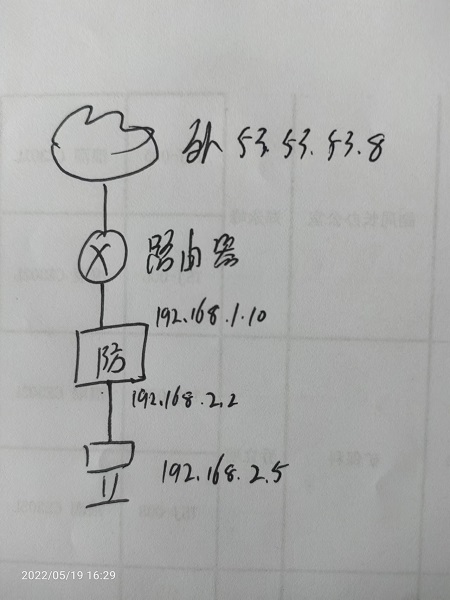 外 53.53.53.8
路由器
192.168.1.10
防
192.168.2.2
192.168.2.5
2022/05/19 16:29